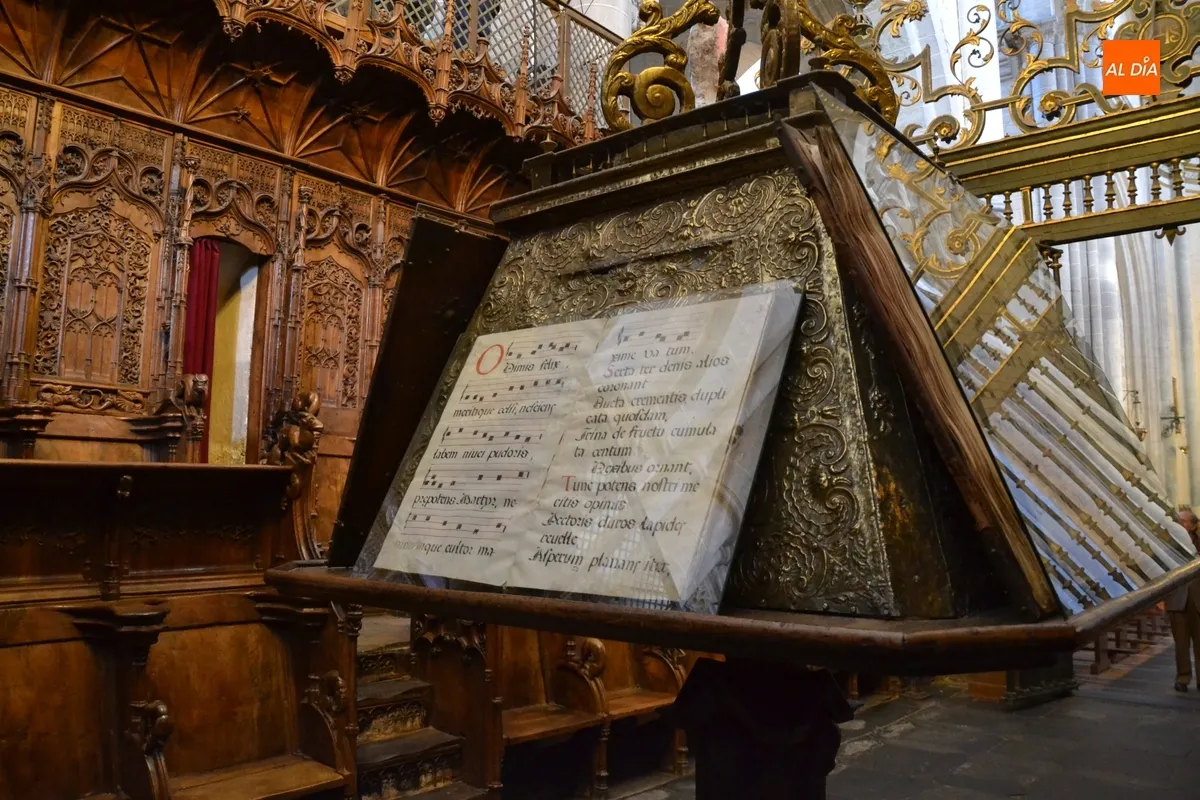 AL DÍA
O Nimis felix,
meritique celsi, nesciens
labem niuei pudoris,
præpotens Martyr, ne
cultor ma
xime va tum.
Serta ter denis alios
coronant
Aucta crementis dupli
cata quosdam,
Trina de fructu cumula
ta centum
Nexibus ornant,
Tunc potens nostri me
ritis opimis
Pectoris duros lapides
reuelle
Asperum planans iter